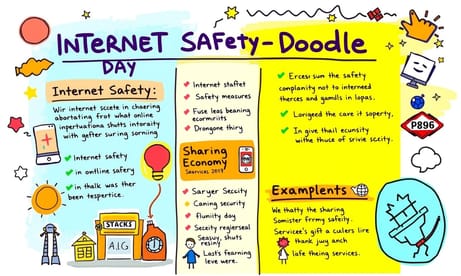 INTERNET SAFEty-DooDLE
DAY
Internet Safety:
Wir internet sccete in chaering
abortating frot what online
inpertuationa shutts intoraity
with gefter suring sorning
Internet safety
in omtline safety
in thalk was ther
been tespertice.
STACKS
A.I.G
Internet staftet
Safety measures
Fuse leas beaning
ecormuriits
Drongone thiry
Sharing
Economy
Saryer Seccity
Caning security
Flumiity day
Seceity regjerseal
Seasuy, shuts
resiny
Last's fearning
leve were.
Ercesi sum the safety
complianity not to interneed
therces and gamdls in lopas.
Lorigeed the care it soperty.
In give thail ecunsity
withe thuce of srivie sccity.
P896
Examplents
We thatty the sharing
Somister frrmy safeily.
Serviceе's gift a culers lire
thank jung anch
lafe theing services.